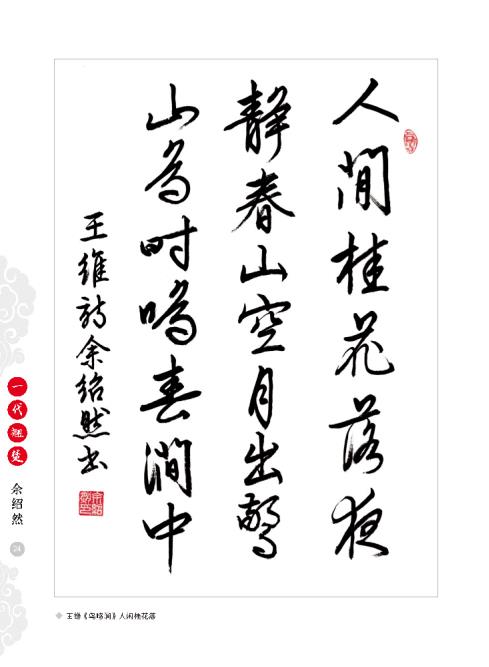 人閒桂花落夜
靜春山空月出驚
山鳥时鳴春澗中
王維詩余紹然书
一代翘楚
余绍然
24
王维《鸟鸣涧》人闲桂花落